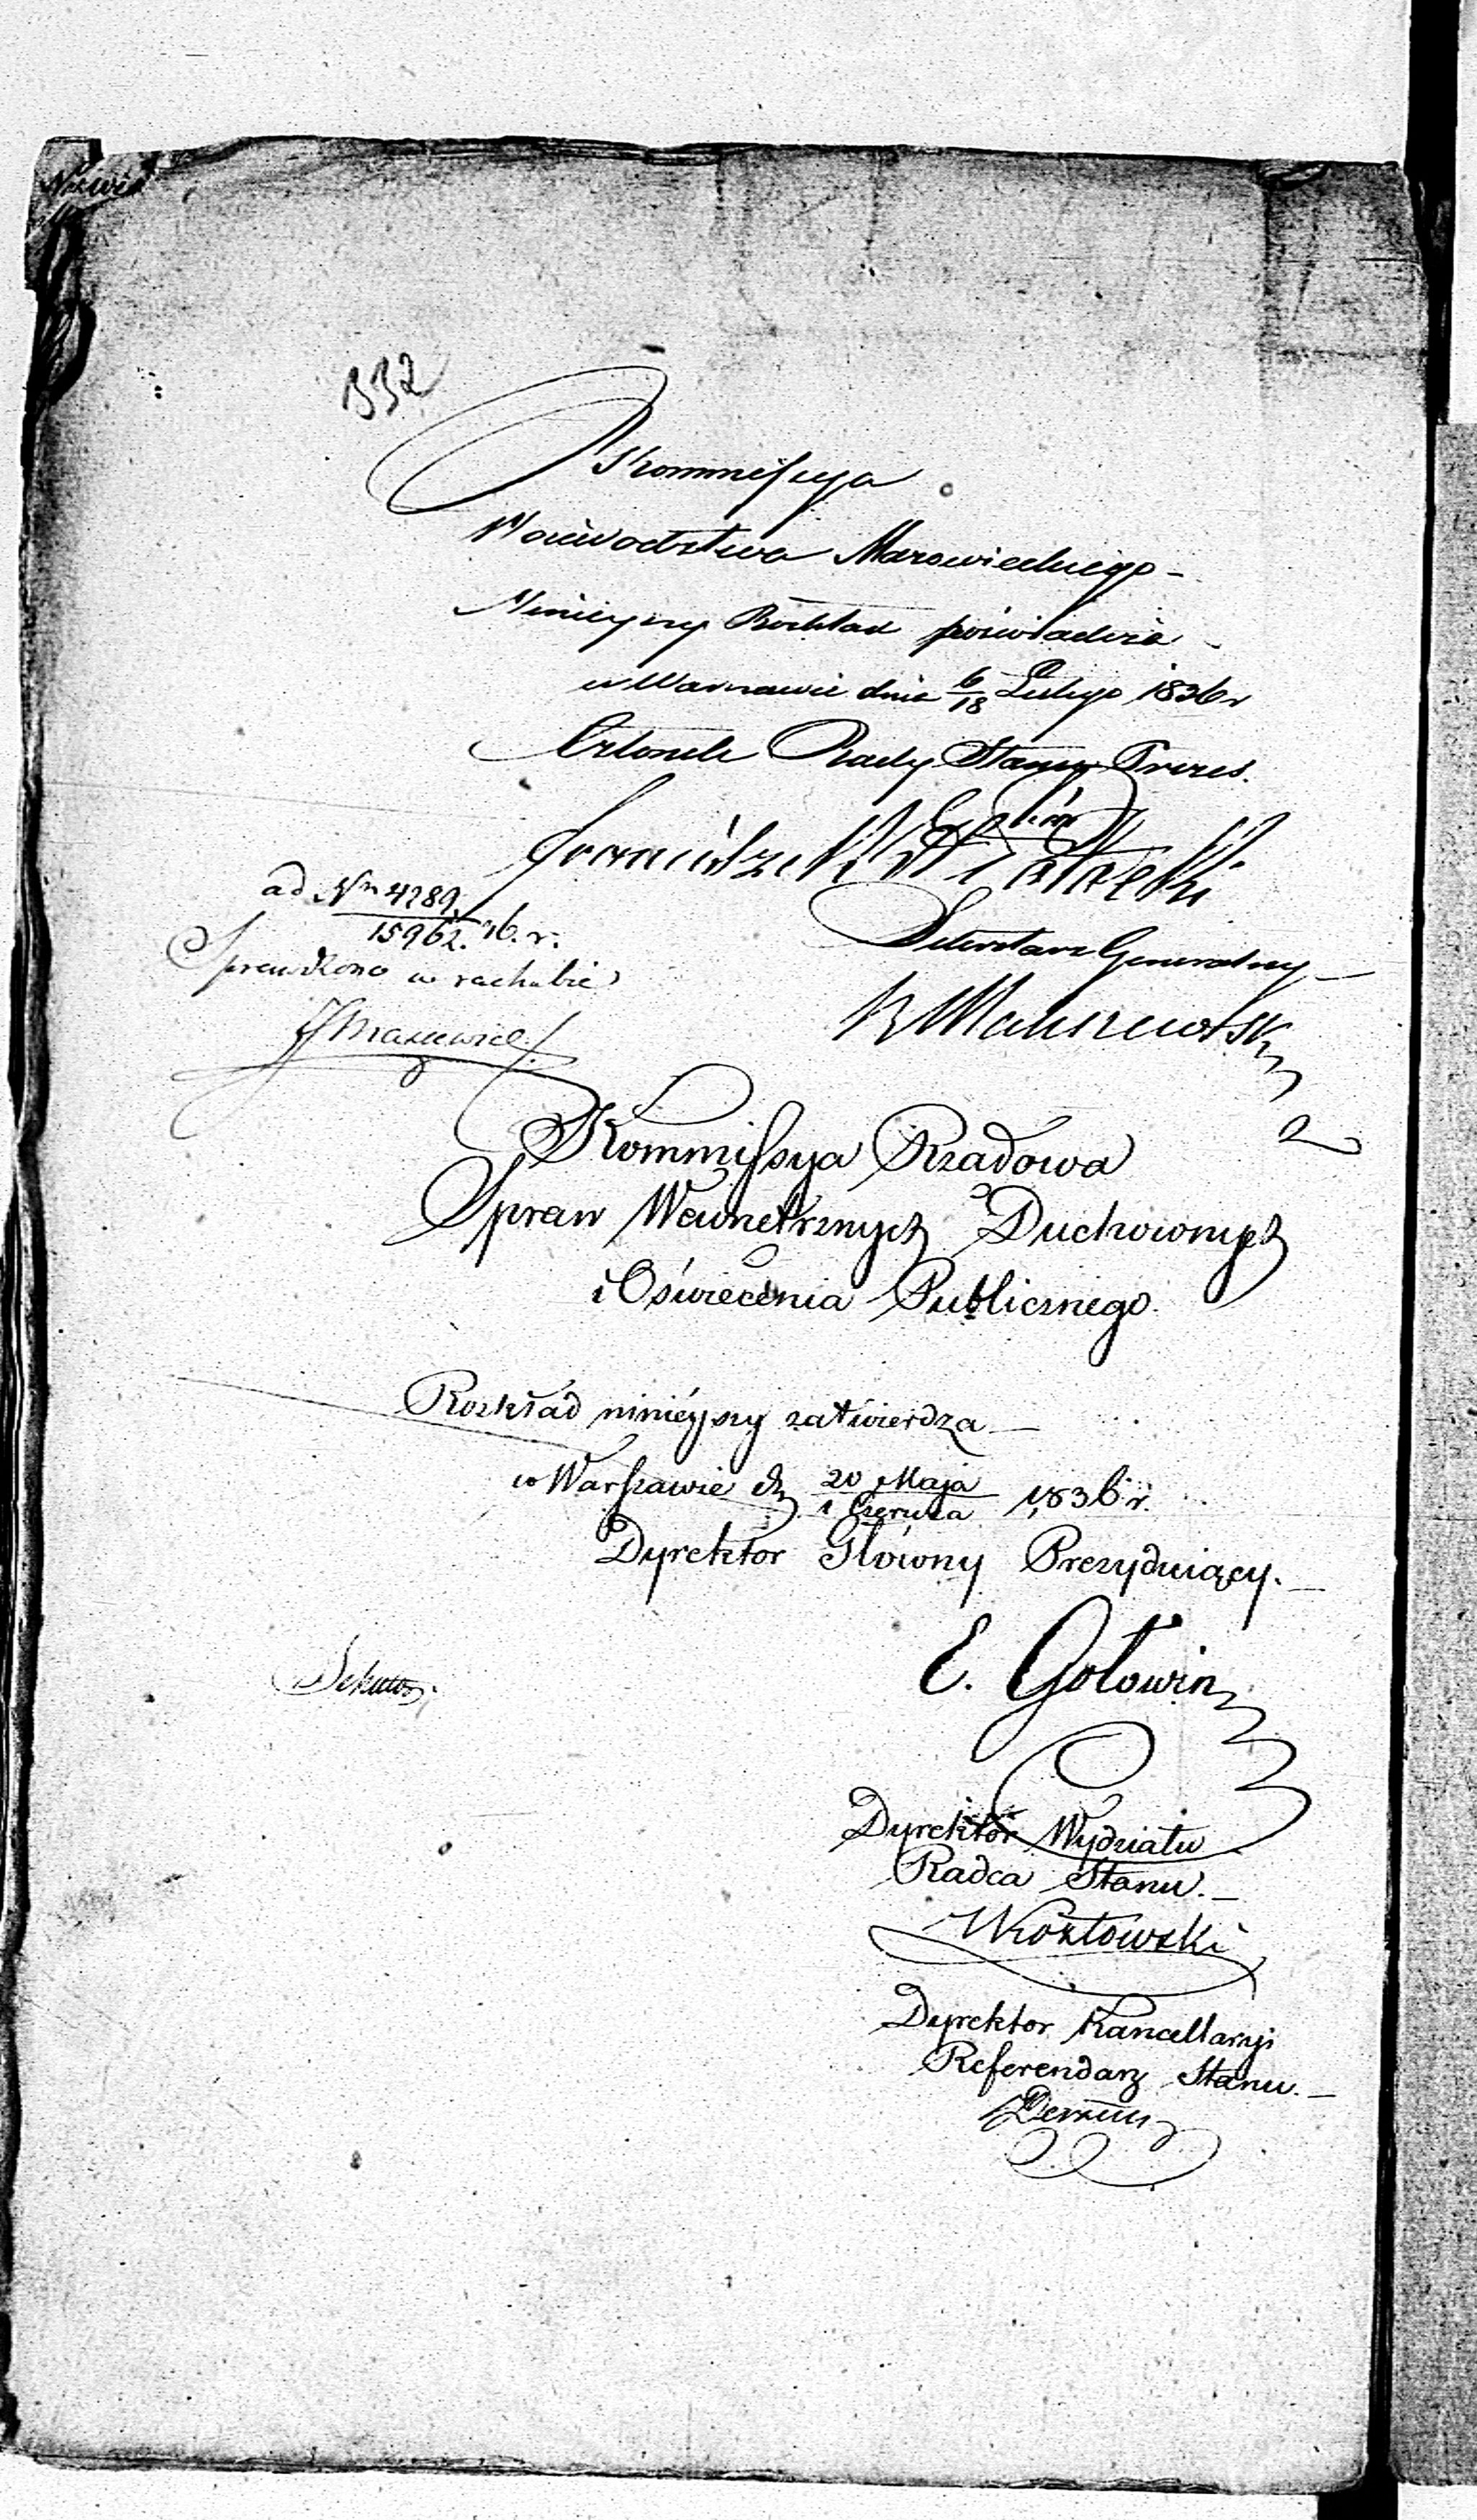 332
Kommissya
Woiewództwa Mazowieckiego -
Ninieyszy Rozkład poświadcza -
w Warszawie dnia 6/18 Lutego 1836 r
Członek Rady Stanu Prezes.
Franciszek
Sekretarz Generalny
ad Nr 4289.
15962. 36. r.
Sprawdzono w rachubie
Kommissya Rządowa
Spraw Wewnętrznych Duchownych
i Oświecenia Publicznego.
Rozkład ninieyszy zatwierdza -
w Warszawie d. 20 Maja / 1 Czerwca 1836 r.
Dyrektor Główny Prezyduiący. -
E. Gołowin
Dyrektor Wydziału
Radca Stanu. -
Kozłowski
Dyrektor Kancellaryi
Referendarz Stanu. -